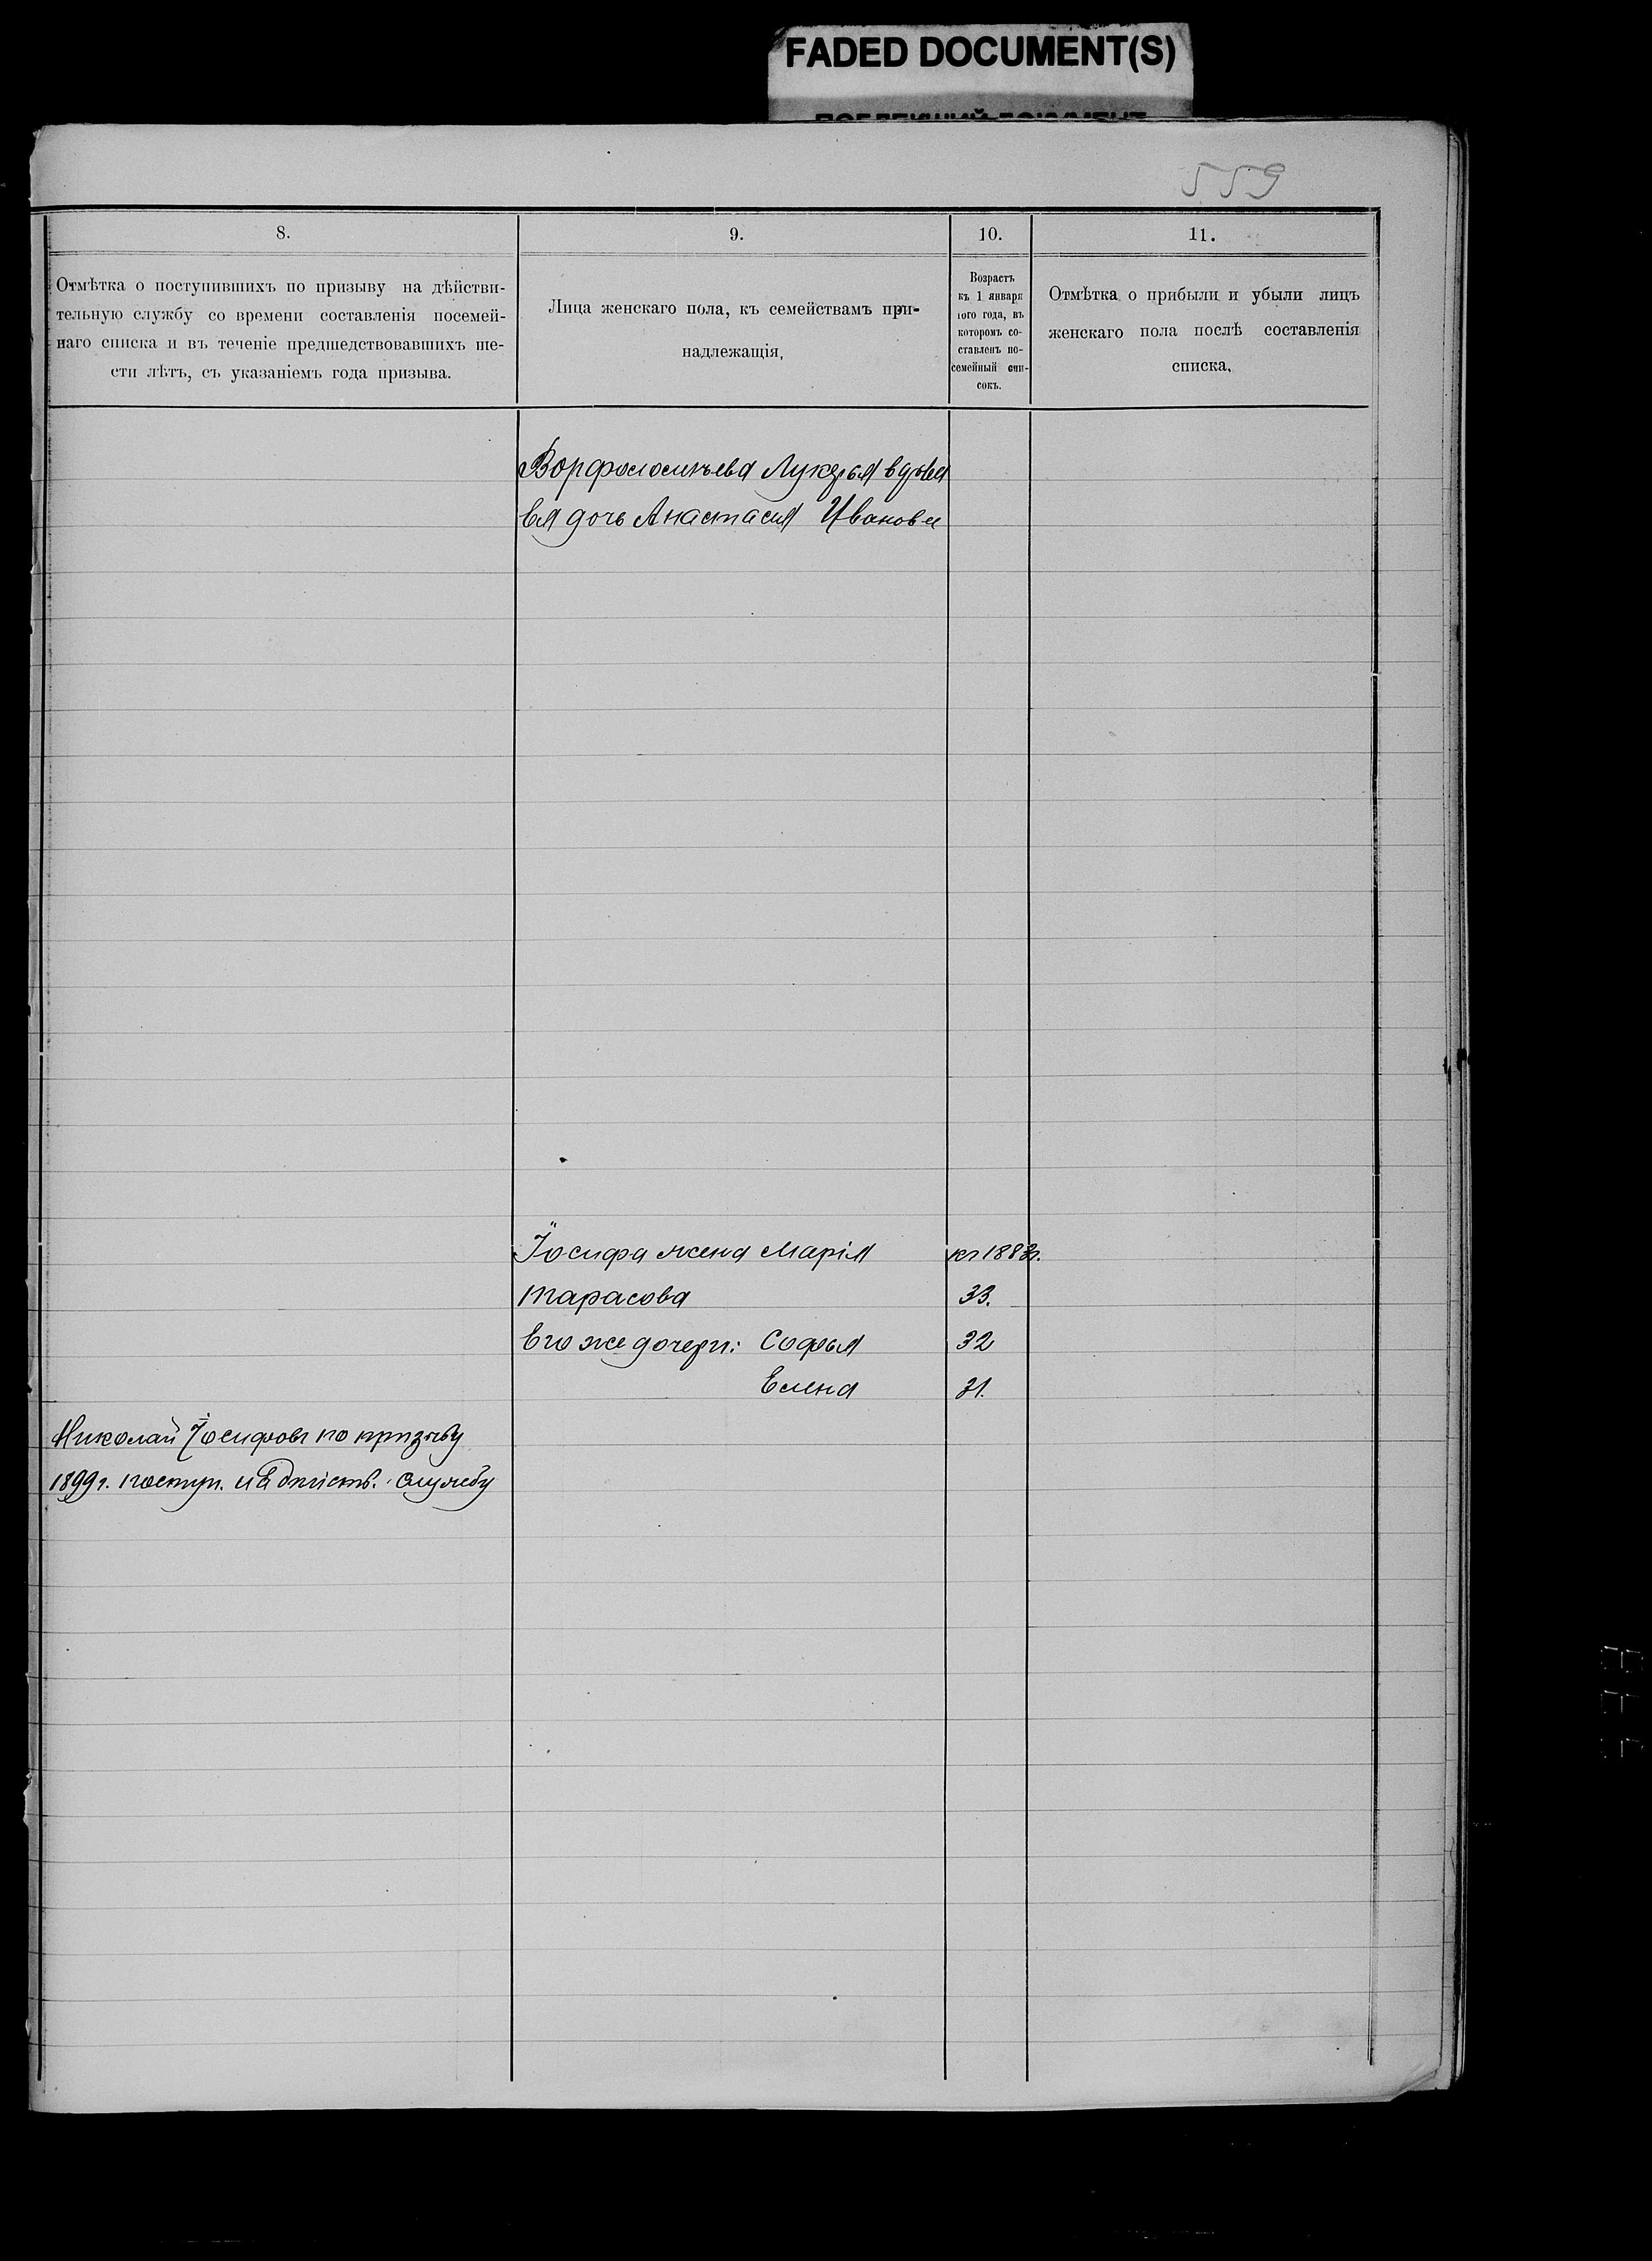 FADED DOCUMENT(S)
559
8.
Отмѣтка о поступившихъ по призыву на дѣйстви-
тельную службу со времени составленія посемей-
наго списка и въ теченіе предшедствовавшихъ ше-
сти лѣтъ, съ указаніемъ года призыва.
9.
Лица женскаго пола, къ семействамъ при-
надлежащія,
10.
Возрастъ
къ 1 января
того года, въ
которомъ со-
ставленъ по-
семейный спи-
сокъ.
11.
Отмѣтка о прибыли и убыли лицъ
женскаго пола послѣ составленія
списка,
Лукерья вдова
Ея дочь Анастасія Иванова
Іосифа жена Марія
Тарасова
33.
Его же дочери: Софья
32
Елена
31.
Николай Іосифовъ по призыву
1899г. поступ. на дѣйств. службу